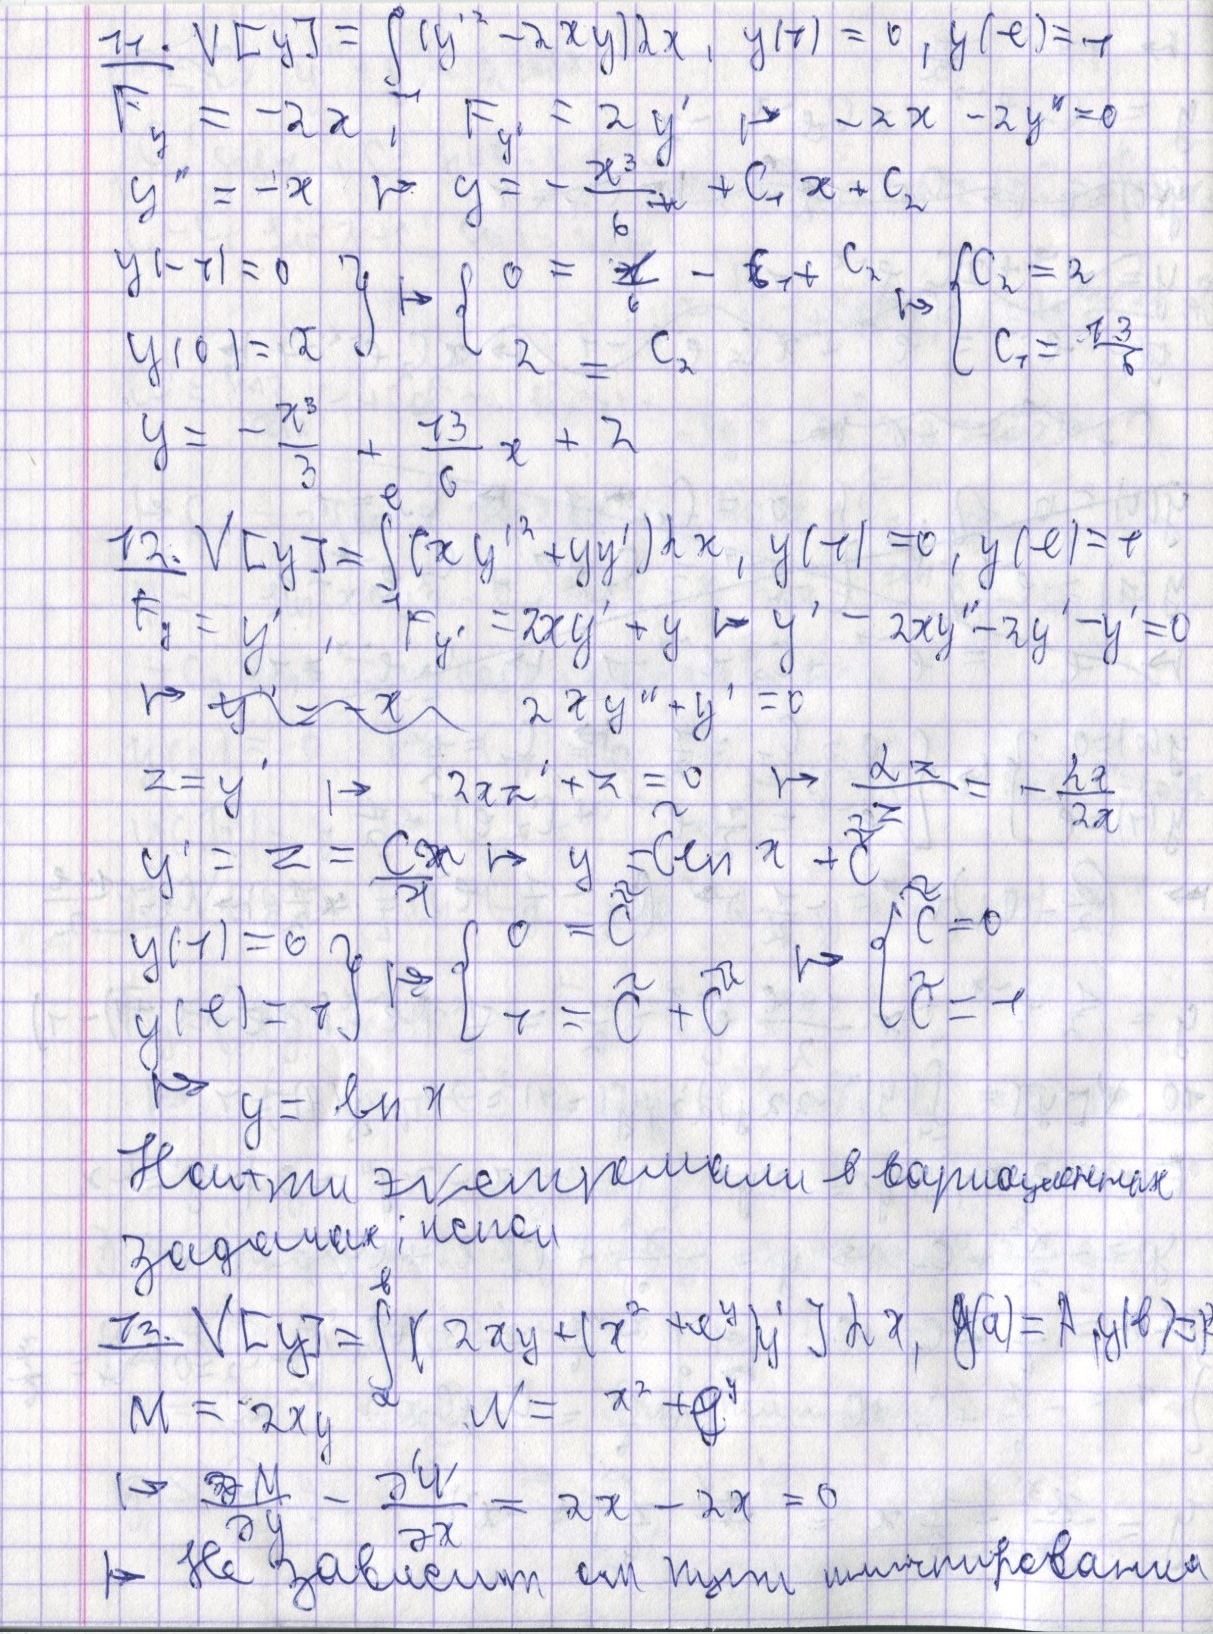 11. V[y] = ∫₋₁⁰ (y'² - 2xy) dx, y(1) = 0, y(e) = 1
F_y = -2x ; F_y' = 2y' ↦ -2x - 2y'' = 0
y'' = -x ↦ y = - x³/6 + C₁x + C₂
y(-1) = 0 } ↦ { 0 = 1/6 - C₁ + C₂ ↦ { C₂ = 2
y(0) = 2 2 = C₂ C₁ = 13/6
y = - x³/3 + 13/6 x + 2
12. V[y] = ∫₁ᵉ (xy'² + yy') dx, y(1) = 0, y(e) = 1
F_y = y' , F_y' = 2xy' + y ↦ y' - 2xy'' - 2y' - y' = 0
↦ y' = -x 2xy'' + y' = 0
z = y' ↦ 2xz' + z = 0 ↦ dz/z = - dx/2x
y' = z = C/x ↦ y = C̃ ln x + C̃̃
y(1) = 0 } ↦ { 0 = C̃̃ ↦ { C̃̃ = 0
y(e) = 1 1 = C̃ + C̃̃ C̃ = 1
↦ y = ln x
Найти экстремали в вариационных
задачах;
13. V[y] = ∫ₐᵇ [2xy + (x² + e^y)y'] dx, y(a) = A, y(b) = B
M = 2xy N = x² + e^y
↦ ∂M/∂y - ∂N/∂x = 2x - 2x = 0
↦ Не зависит от пути интегрирования